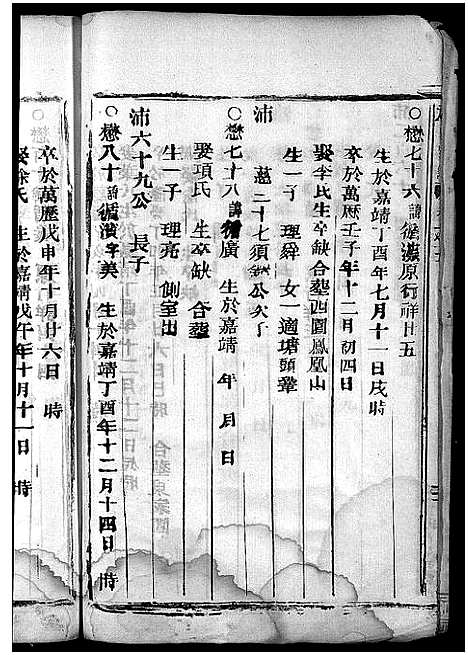 ○懋七十六諱循濲原行祥廿五
生於嘉靖丁酉年七月十一日戌時
卒於萬歷壬子年十二月初四日
娶李氏生卒缺合塟西園鳳凰山
生一子理舜女一適塘頭鞏
沛 慈二十七須公次子
○懋七十八諱循廣生於嘉靖 年 月 日
娶項氏 生卒缺 合塟
生一子 理亮 側室出
沛六十九公 長子
○懋八十諱循濱字美 生於嘉靖丁酉年十二月十四日 時
卒於萬歷戊申年十月廿六日 時
娶徐氏 生於嘉靖戊午年十月十一日 時